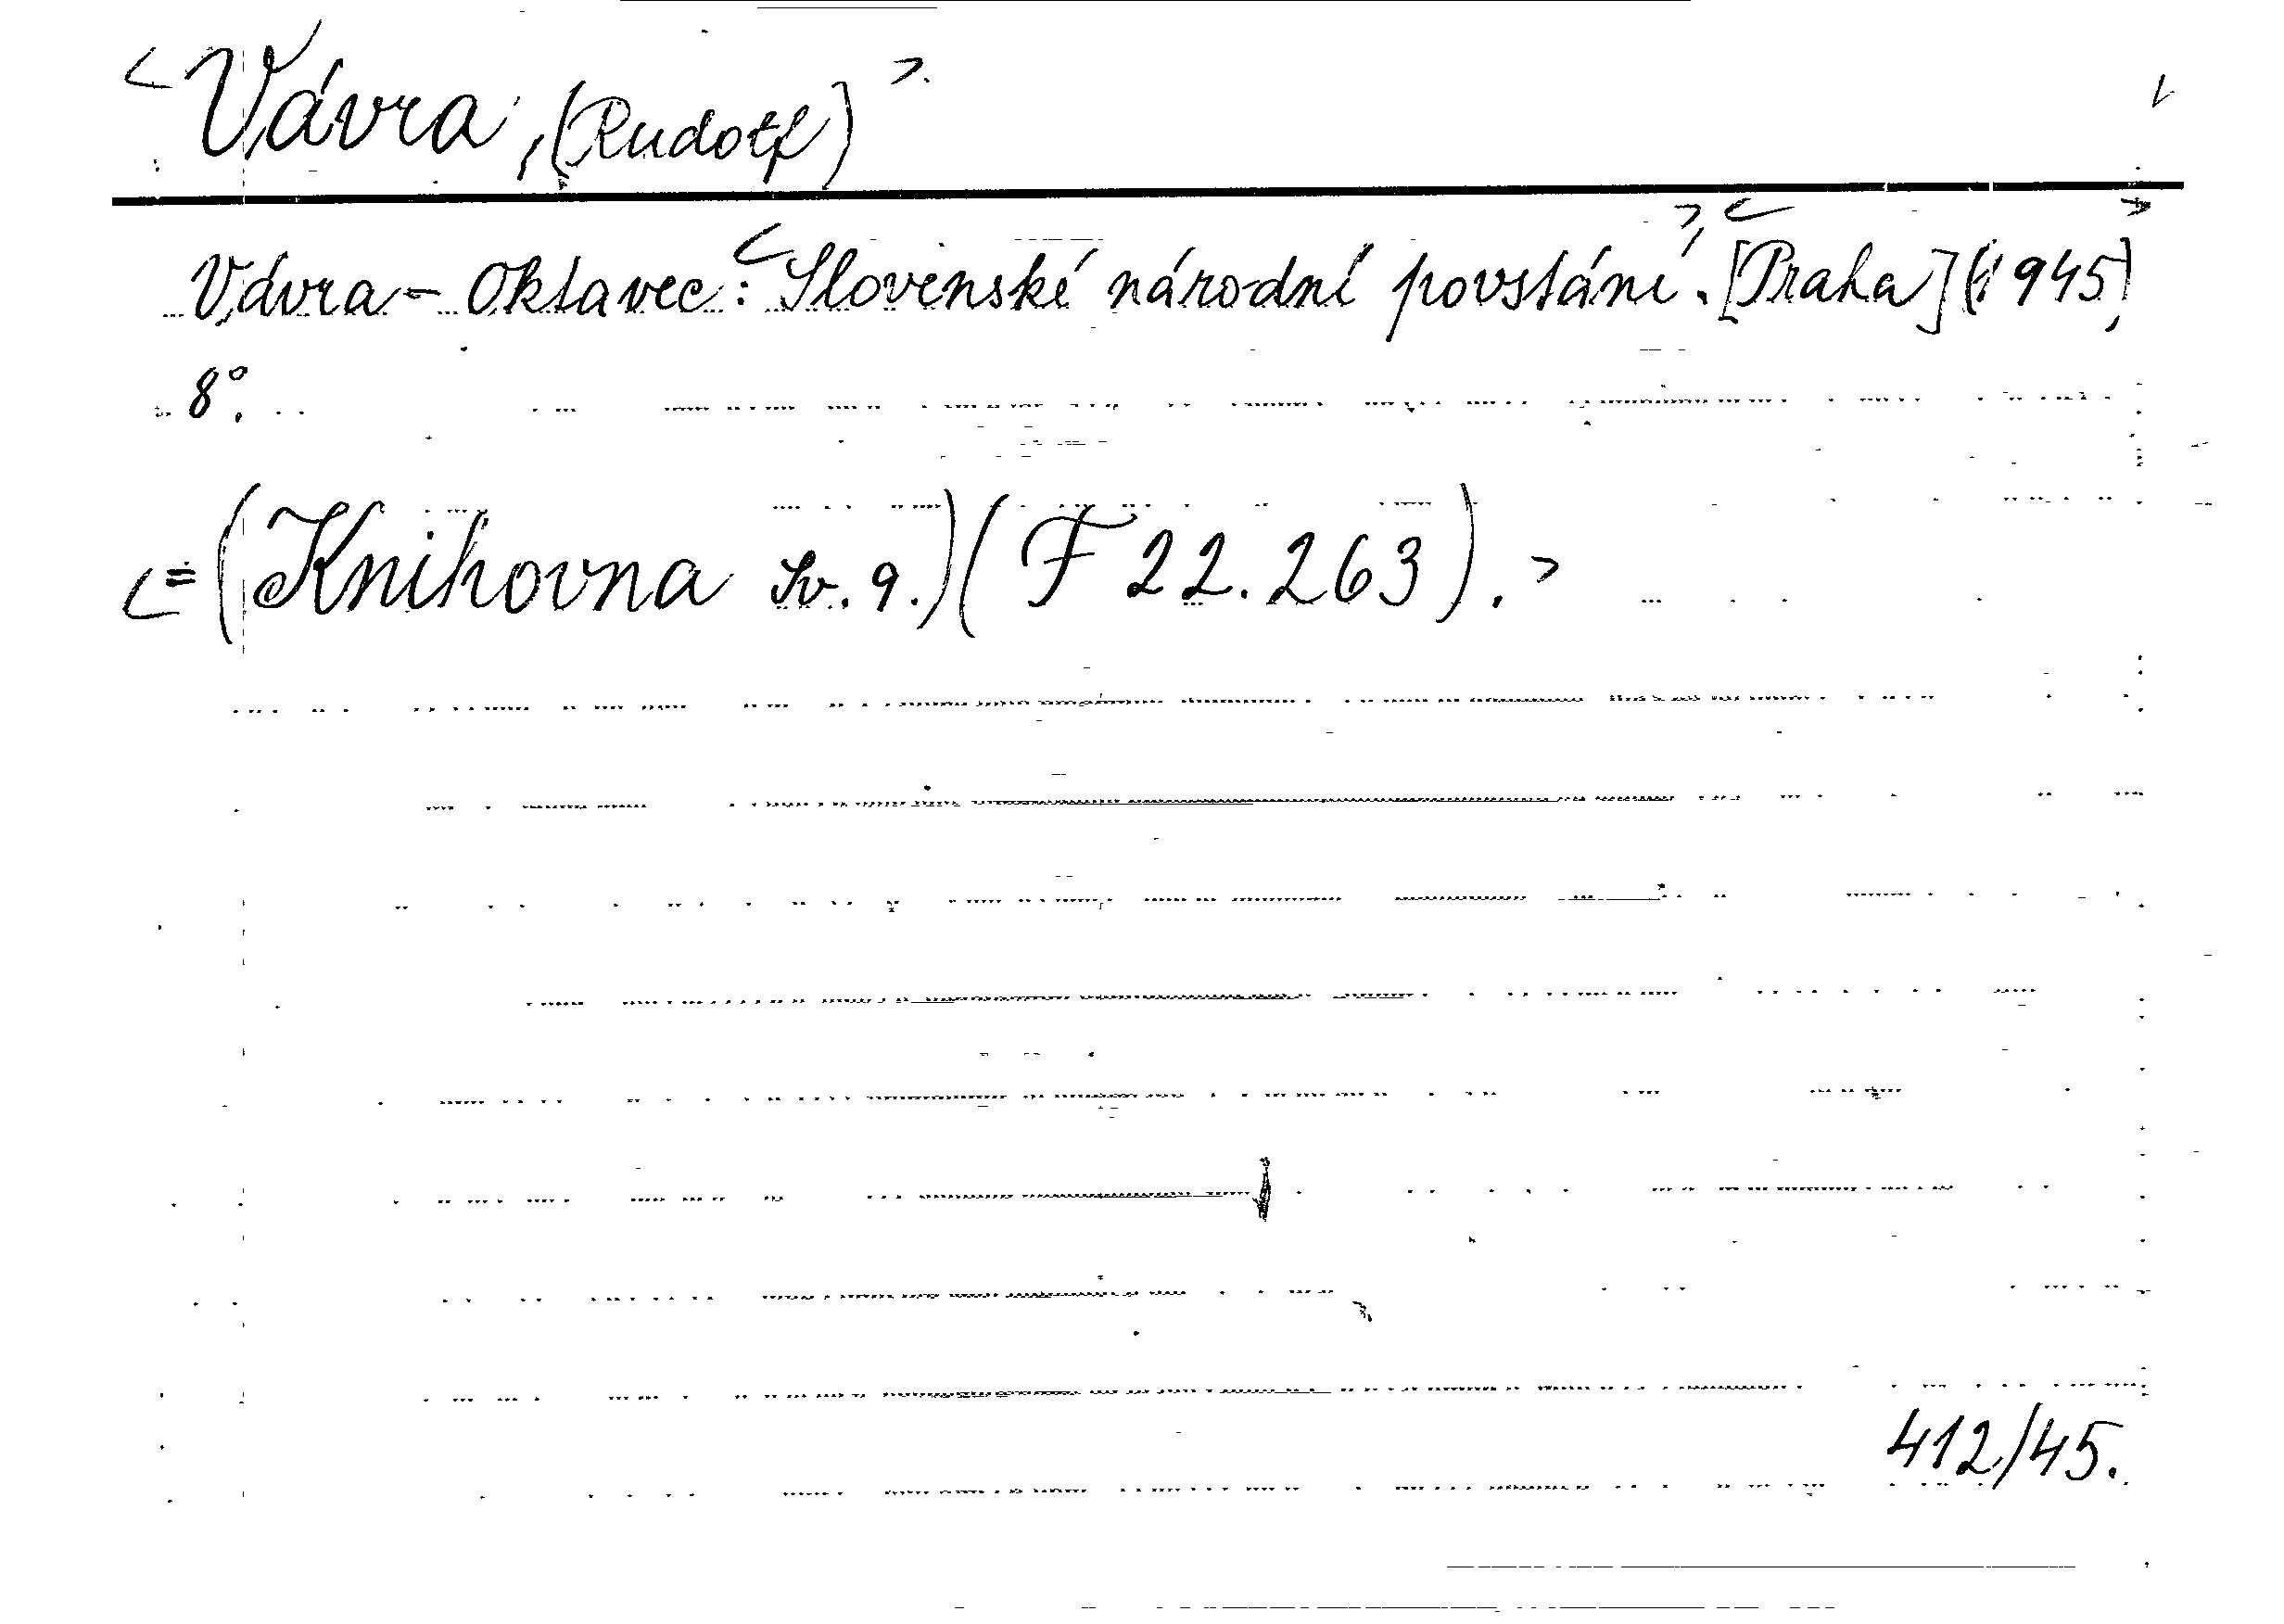 <Vávra, (Rudolf)>.
Vávra - Oktavec: <Slovenské národní povstání>. <[Praha] (1945)>,
8°.
<= (Knihovna sv. 9.) (F 22.263). >
412/45.